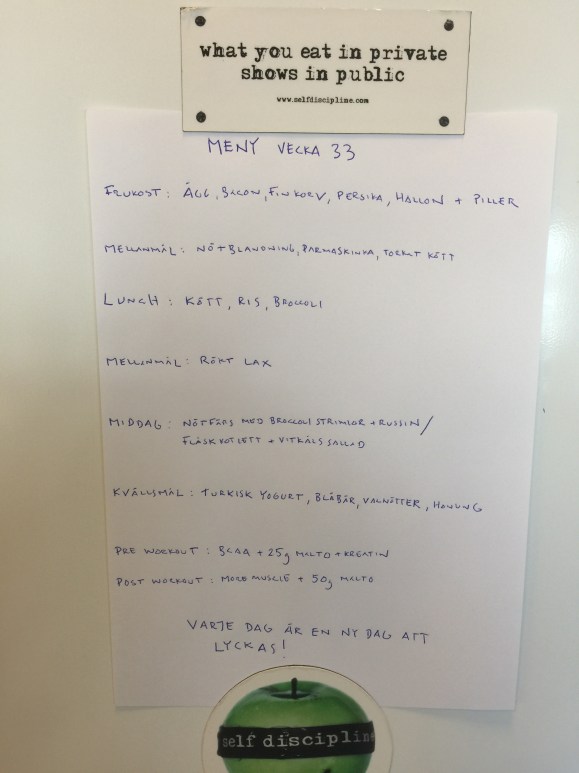 what you eat in private
shows in public
www.selfdiscipline.com
MENY VECKA 33
FRUKOST: ÄGG, BACON, FINKORV, PERSIKA, HALLON + PILLER
MELLANMÅL: NÖTBLANDNING, PARMASKINKA, TORKAT KÖTT
LUNCH: KÖTT, RIS, BROCCOLI
MELLANMÅL: RÖKT LAX
MIDDAG: NÖTFÄRS MED BROCCOLI STRIMLOR + RUSSIN/
FLÄSKKOTLETT + VITKÅLSSALLAD
KVÄLLSMÅL: TURKISK YOGURT, BLÅBÄR, VALNÖTTER, HONUNG
PRE WORKOUT: BCAA + 25g MALTO + KREATIN
POST WORKOUT: MORE MUSCLE + 50g MALTO
VARJE DAG ÄR EN NY DAG ATT
LYCKAS!
self discipline